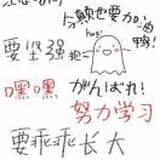 今颠也要加油鸭！
hug!
要坚强 抱
嘿嘿 がんばれ！
努力学习
要乖乖长大